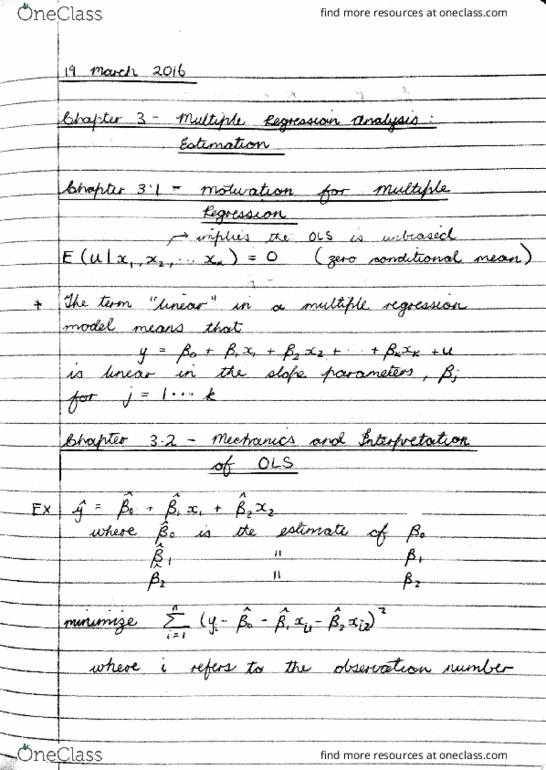 OneClass
find more resources at oneclass.com
19 March 2016
Chapter 3 - Multiple Regression Analysis:
Estimation
Chapter 3.1 - Motivation for Multiple
Regression
→ implies the OLS is unbiased
E(u|x₁, x₂, ... xₖ) = 0 (zero conditional mean)
* The term "linear" in a multiple regression
model means that
y = β₀ + β₁x₁ + β₂x₂ + ... + βₖxₖ + u
is linear in the slope parameters, βⱼ
for j = 1 ... k
Chapter 3.2 - Mechanics and Interpretation
of OLS
Ex ŷ = β̂₀ + β̂₁x₁ + β̂₂x₂
where β̂₀ is the estimate of β₀
β̂₁ " β₁
β̂₂ " β₂
minimize Σᵢ₌₁ⁿ (yᵢ - β̂₀ - β̂₁xᵢ₁ - β̂₂xᵢ₂)²
where i refers to the observation number
OneClass
find more resources at oneclass.com